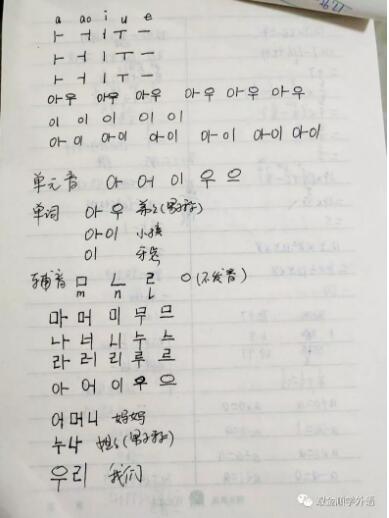 a ao i u e
ㅏ ㅓ ㅣ ㅜ ㅡ
ㅏ ㅓ ㅣ ㅜ ㅡ
ㅏ ㅓ ㅣ ㅜ ㅡ
아우 아우 아우 아우 아우 아우
이 이 이 이 이
아이 아이 아이 아이 아이 아이
单元音 아 어 이 우 으
单词 아우 弟弟(男称)
아이 小孩
이 牙齿
辅音 ㅁ ㄴ ㄹ ㅇ(不发音)
m n l
마 머 미 무 므
나 너 니 누 느
라 러 리 루 르
아 어 이 우 으
어머니 妈妈
누나 姐姐(男称)
우리 我们